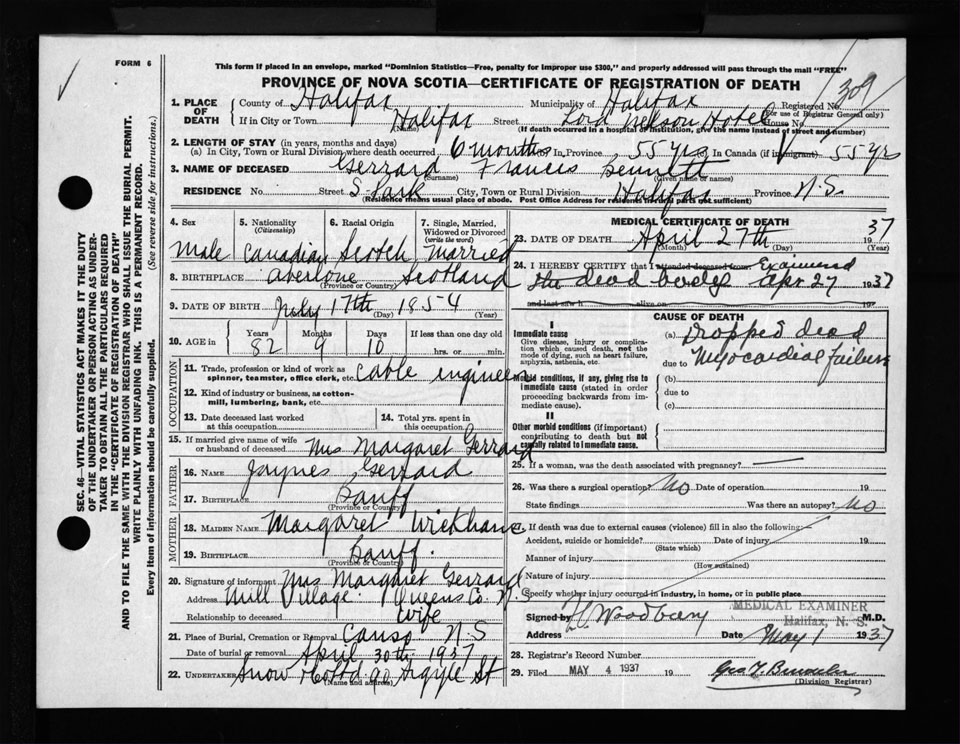 FORM 6
This form if placed in an envelope, marked "Dominion Statistics—Free, penalty for improper use $300," and properly addressed will pass through the mail "FREE"
PROVINCE OF NOVA SCOTIA—CERTIFICATE OF REGISTRATION OF DEATH
309
1. PLACE OF DEATH County of Halifax Municipality of Halifax Registered No.
(For use of Registrar General only)
If in City or Town Halifax Street Lord Nelson Hotel House No.
(Name) (If death occurred in a hospital or institution, give the name instead of street and number)
2. LENGTH OF STAY (in years, months and days)
(a) In City, Town or Rural Division where death occurred 6 months In Province 55 yrs In Canada (if immigrant) 55 yrs
3. NAME OF DECEASED Gerrard Francis Bennett
(Surname) (Given name or names)
RESIDENCE No. Street S. Park City, Town or Rural Division Halifax Province N.S.
(Residence means usual place of abode. Post Office Address for residents in rural parts not sufficient)
4. Sex 5. Nationality 6. Racial Origin 7. Single, Married, Widowed or Divorced
(Citizenship) (write the word)
Male Canadian Scotch Married
8. BIRTHPLACE Scotland
(Province or Country)
9. DATE OF BIRTH July 17th 1854
(Month) (Day) (Year)
10. AGE in Years Months Days If less than one day old
82 9 10 hrs. or min.
OCCUPATION
11. Trade, profession or kind of work as spinner, teamster, office clerk, etc. Cable engineer
12. Kind of industry or business, as cotton-mill, lumbering, bank, etc.
13. Date deceased last worked at this occupation 14. Total yrs. spent in this occupation
15. If married give name of wife or husband of deceased Mrs Margaret Gerrard
FATHER
16. NAME Jaynes Gerrard
17. Birthplace Banff
(Province or Country)
MOTHER
18. MAIDEN NAME Margaret
19. BIRTHPLACE Banff.
(Province or Country)
20. Signature of informant Mrs Margaret Gerrard
Address Mill Village Queens Co. N.S
Relationship to deceased wife
21. Place of Burial, Cremation or Removal Canso N.S
Date of burial or removal April 30th 1937
22. UNDERTAKER Snow & Co Ltd 90 Argyle St
(Name and address)
MEDICAL CERTIFICATE OF DEATH
23. DATE OF DEATH April 27th 1937
(Month) (Day) (Year)
24. I HEREBY CERTIFY that I attended deceased from Examined
the dead body Apr 27 1937
and last saw h alive on 19
CAUSE OF DEATH
I
Immediate cause (a) Dropped dead
Give disease, injury or complication which caused death, not the mode of dying, such as heart failure, asphyxia, asthenia, etc.
due to Myocardial failure
Morbid conditions, if any, giving rise to immediate cause (stated in order proceeding backwards from immediate cause).
(b)
due to
(c)
II
Other morbid conditions (if important) contributing to death but not causally related to immediate cause.
25. If a woman, was the death associated with pregnancy?
26. Was there a surgical operation? No Date of operation 19
State findings Was there an autopsy? No
27. If death was due to external causes (violence) fill in also the following—
Accident, suicide or homicide? Date of injury 19
(State which)
Manner of injury
(How sustained)
Nature of injury
Specify whether injury occurred in industry, in home, or in public place
MEDICAL EXAMINER
Halifax, N. S.
Signed by Woodbury M.D.
Address Date May 1 1937
28. Registrar's Record Number
29. Filed MAY 4 1937 19
(Division Registrar)
SEC. 46—VITAL STATISTICS ACT MAKES IT THE DUTY
OF THE UNDERTAKER OR PERSON ACTING AS UNDER-
TAKER TO OBTAIN ALL THE PARTICULARS REQUIRED
IN THE "CERTIFICATE OF REGISTRATION OF DEATH"
AND TO FILE THE SAME WITH THE DIVISION REGISTRAR WHO SHALL ISSUE THE BURIAL PERMIT.
WRITE PLAINLY WITH UNFADING INK. THIS IS A PERMANENT RECORD.
Every item of information should be carefully supplied. (See reverse side for instructions.)